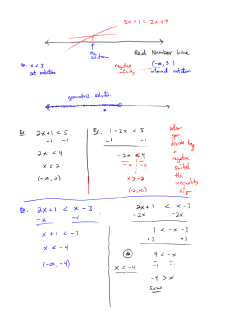 5x+1 = 2x+7
Real Number Line
Ex. x < 3
set notation
negative infinity
(-∞, 3)
interval notation
geometric solution
Ex. 2x+1 < 5
-1 -1
2x < 4
x < 2
(-∞, 2)
Ex. 1-2x < 5
-1 -1
-2x < 4
-2 -2
x > -2
(-2, ∞)
When
you
divide by
a
negative
switch
the
inequality
sign
Ex. 2x+1 < x-3
-x -x
x+1 < -3
x < -4
(-∞, -4)
2x+1 < x-3
-2x -2x
1 < -x-3
+3 +3
4 < -x
-1 -1
-4 > x
x < -4
same